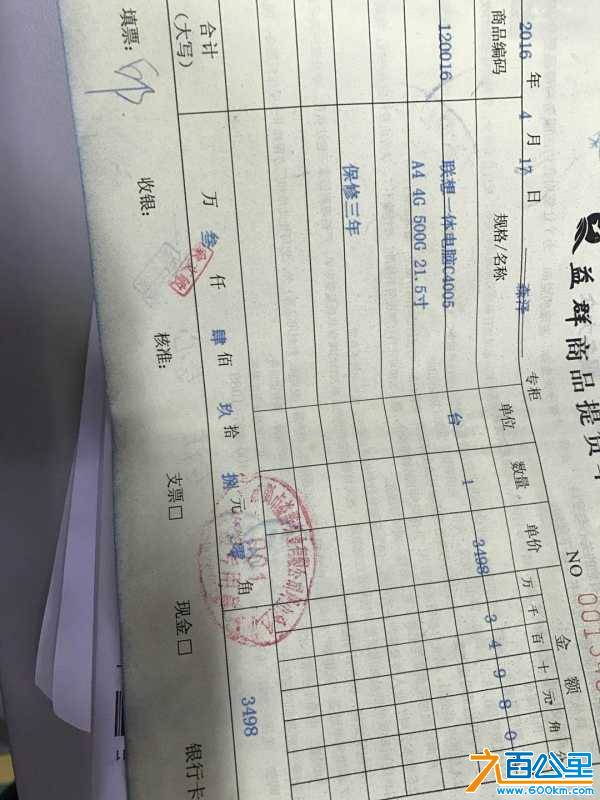 益群商品提货
NO 001346
2016 年 4 月 17 日 森泽 专柜
商品编码 规格/名称 单位 数量 单价 金额
万 千 百 十 元 角 分
120016 联想一体电脑C4005 台 1 3498 3 4 9 8 0
A4 4G 500G 21.5寸
保修三年
合计(大写) 万 叁 仟 肆 佰 玖 拾 捌 元 零 角 3498
填票: 收银: 核准: 支票□ 现金□ 银行卡
六百公里
www.600km.com